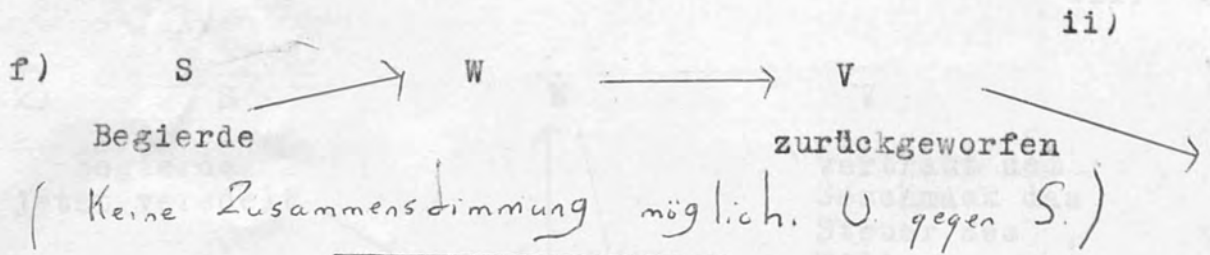 ii)
f) S W V
Begierde zurückgeworfen
( Keine Zusammenstimmung möglich. V. gegen S.)